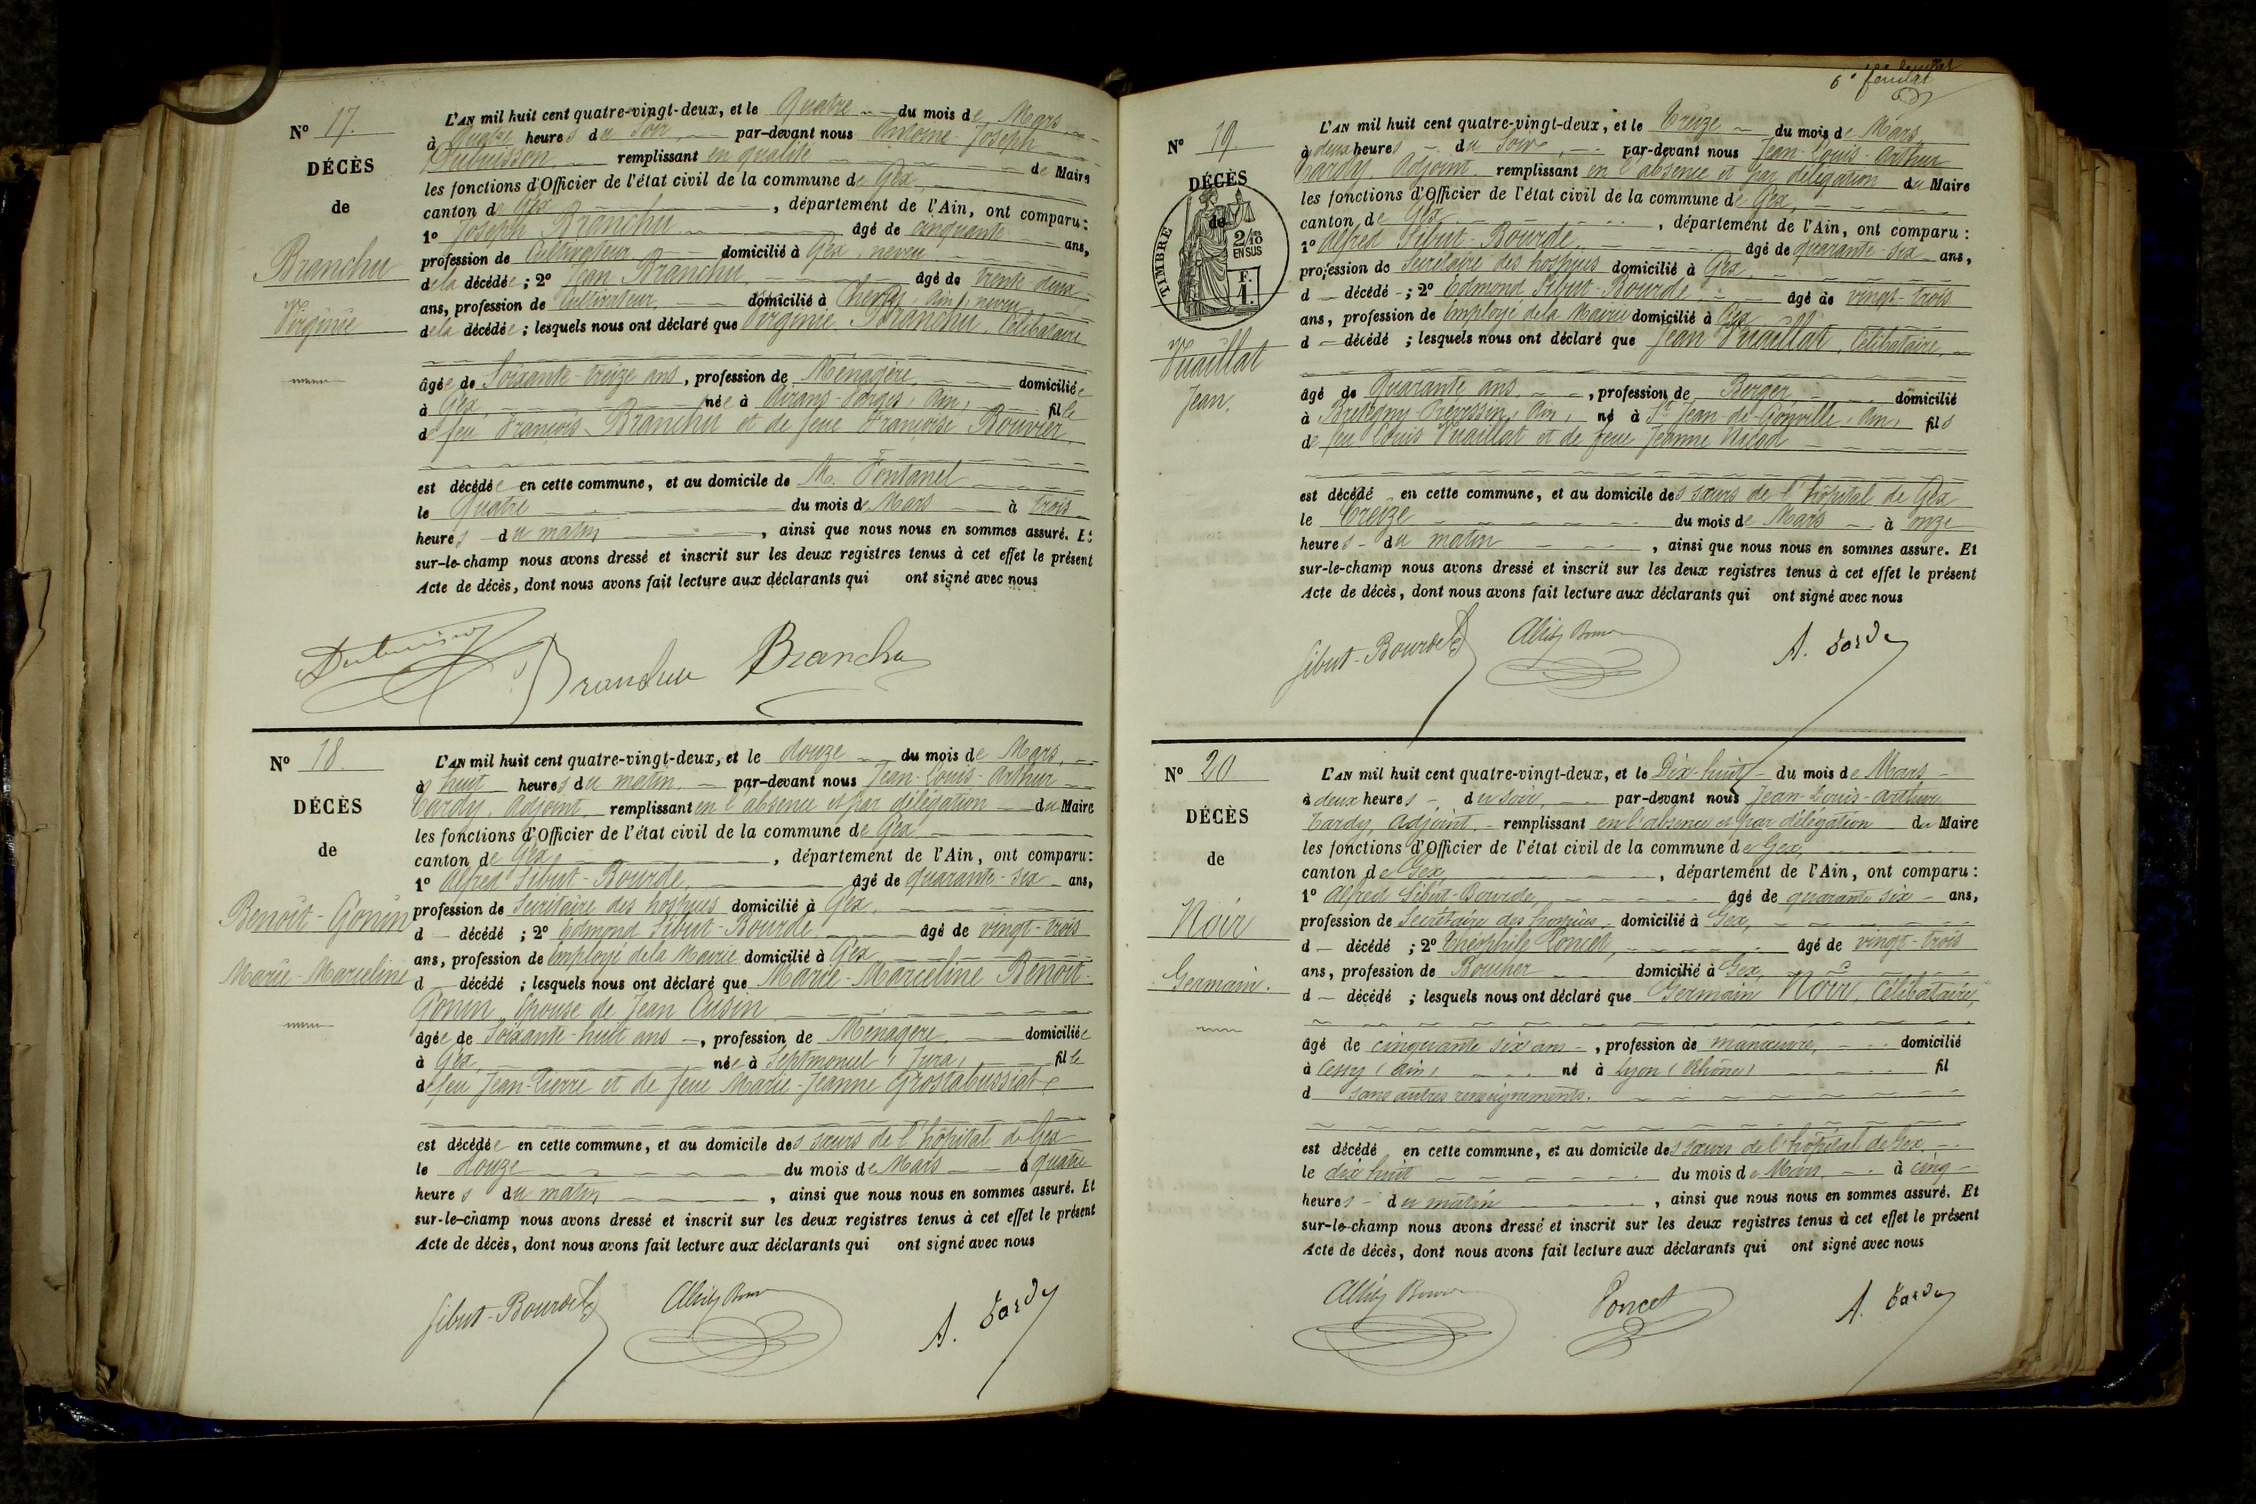 N° 17.
DÉCÈS
de
Branchu
Virginie
L'AN mil huit cent quatre-vingt-deux, et le Quatre du mois de Mars
à Quatre heures du Soir, par-devant nous Antoine-Joseph
Dubuisson remplissant en qualité de Maire
les fonctions d'Officier de l'état civil de la commune de Gex,
canton de Gex, département de l'Ain, ont comparu:
1° Joseph Branchu âgé de cinquante ans,
profession de Cultivateur domicilié à Gex, neveu
de la décédée; 2° Jean Branchu, âgé de trente deux
ans, profession de Cultivateur domicilié à Ain, neveu
de la décédée; lesquels nous ont déclaré que Virginie Branchu, Célibataire
âgée de Soixante-treize ans, profession de Ménagère, domiciliée
à Gex, née à Ain, fille
de feu François Branchu et de feue Françoise Bouvier,
est décédée en cette commune, et au domicile de M. Fontanel
le Quatre du mois de Mars à trois
heures du matin, ainsi que nous nous en sommes assuré. Et
sur-le-champ nous avons dressé et inscrit sur les deux registres tenus à cet effet le présent
Acte de décès, dont nous avons fait lecture aux déclarants qui ont signé avec nous
Dubuisson Branchu Branchu
N° 18.
DÉCÈS
de
Benoît-Gonin
Marie-Marceline
L'AN mil huit cent quatre-vingt-deux, et le douze du mois de Mars,
à huit heures du matin, par-devant nous Jean-Louis-Arthur
Tardy, Adjoint, remplissant en l'absence et par délégation du Maire
les fonctions d'Officier de l'état civil de la commune de Gex
canton de Gex, département de l'Ain, ont comparu:
1° Alfred Sibut-Bourde, âgé de quarante-six ans,
profession de Secrétaire des hospices domicilié à Gex,
d décédé; 2° Edmond Sibut-Bourde âgé de vingt-trois
ans, profession de Employé de la Mairie domicilié à Gex
d décédé; lesquels nous ont déclaré que Marie-Marceline Benoît-
Gonin, Épouse de Jean Cusin
âgée de Soixante-huit ans, profession de Ménagère, domiciliée
à Gex, née à Septmoncel (Jura) fille
de feu Jean-Pierre et de feue Marie-Jeanne Grostabussiat
est décédée en cette commune, et au domicile des sœurs de l'hôpital de Gex
le douze du mois de Mars à quatre
heures du matin, ainsi que nous nous en sommes assuré. Et
sur-le-champ nous avons dressé et inscrit sur les deux registres tenus à cet effet le présent
Acte de décès, dont nous avons fait lecture aux déclarants qui ont signé avec nous
Sibut-Bourde A. Tardy
6e feuillet
N° 19.
DÉCÈS
de
TIMBRE
2/10
EN SUS
F.
1.
Vuaillat
Jean.
L'AN mil huit cent quatre-vingt-deux, et le Treize du mois de Mars
à deux heures du Soir, par-devant nous Jean-Louis-Arthur
Tardy, Adjoint, remplissant en l'absence et par délégation du Maire
les fonctions d'Officier de l'état civil de la commune de Gex,
canton de Gex, département de l'Ain, ont comparu:
1° Alfred Sibut-Bourde, âgé de quarante-six ans,
profession de Secrétaire des hospices domicilié à Gex
d décédé; 2° Edmond Sibut-Bourde, âgé de vingt-trois
ans, profession de Employé de la Mairie domicilié à Gex
d décédé; lesquels nous ont déclaré que Jean Vuaillat, Célibataire,
âgé de Quarante ans, profession de Berger domicilié
à Prevessin, Ain, né à St Jean-de-Gonville, Ain, fils
de feu Louis Vuaillat et de feue Jeanne
est décédé en cette commune, et au domicile des sœurs de l'hôpital de Gex
le Treize du mois de Mars à onze
heures du matin, ainsi que nous nous en sommes assuré. Et
sur-le-champ nous avons dressé et inscrit sur les deux registres tenus à cet effet le présent
Acte de décès, dont nous avons fait lecture aux déclarants qui ont signé avec nous
Sibut-Bourde A. Tardy
N° 20
DÉCÈS
de
Noir
Germain.
L'AN mil huit cent quatre-vingt-deux, et le Dix-huit du mois de Mars
à deux heures du soir, par-devant nous Jean-Louis-Arthur
Tardy, Adjoint, remplissant en l'absence et par délégation du Maire
les fonctions d'Officier de l'état civil de la commune de Gex,
canton de Gex, département de l'Ain, ont comparu:
1° Alfred Sibut-Bourde, âgé de quarante six ans,
profession de Secrétaire des hospices, domicilié à Gex,
d décédé; 2° Théophile Poncet, âgé de vingt-trois
ans, profession de Boucher domicilié à Gex,
d décédé; lesquels nous ont déclaré que Germain Noir, Célibataire,
âgé de cinquante six ans, profession de manœuvre, domicilié
à Cessy (Ain) né à Lyon (Rhône) fil
d sans autres renseignements.
est décédé en cette commune, et au domicile des sœurs de l'hôpital de Gex
le dix huit du mois de Mars à cinq
heures du matin, ainsi que nous nous en sommes assuré. Et
sur-le-champ nous avons dressé et inscrit sur les deux registres tenus à cet effet le présent
Acte de décès, dont nous avons fait lecture aux déclarants qui ont signé avec nous
Poncet A. Tardy